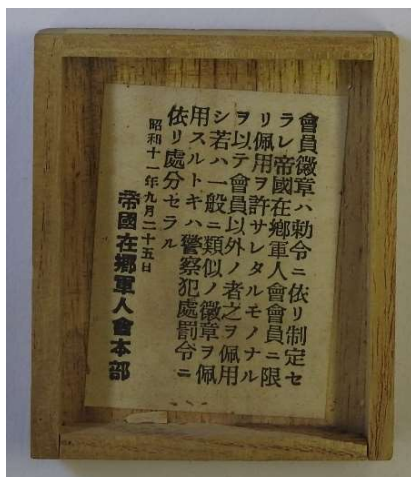 會員徽章ハ勅令ニ依リ制定セ
ラレ帝國在郷軍人會會員ニ限
リ佩用ヲ許サレタルモノナル
ヲ以テ會員以外ノ者之ヲ佩用
シ若ハ一般ニ類似ノ徽章ヲ佩
用スルトキハ警察犯處罰令ニ
依リ處分セラル
昭和十一年九月二十五日
帝國在郷軍人會本部